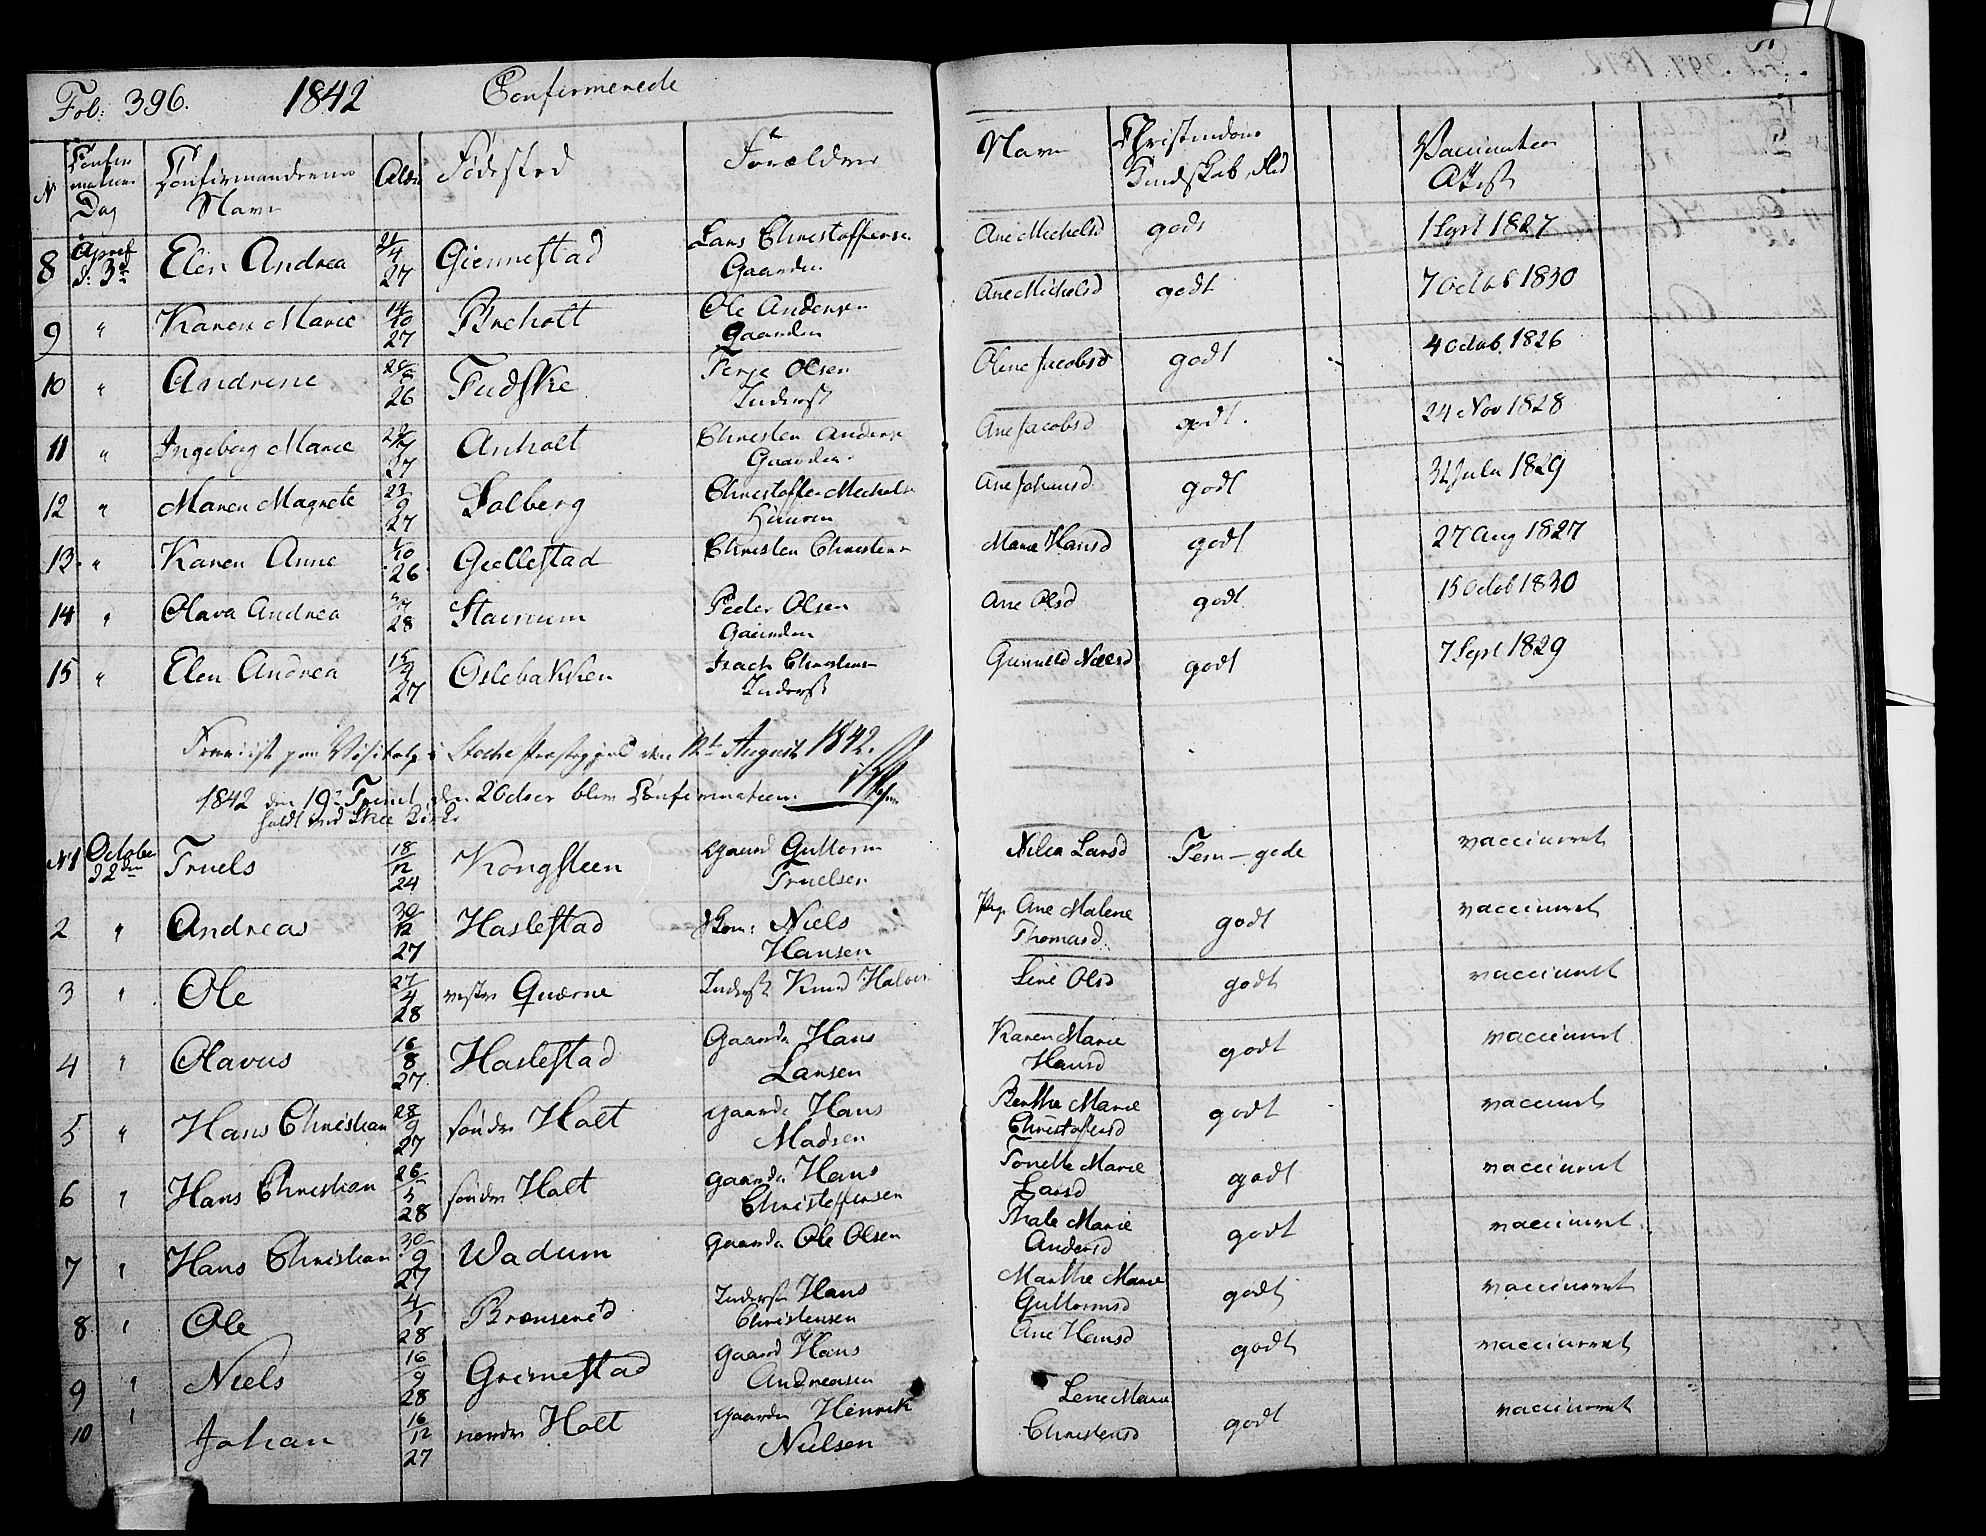 Fol: 396. 1842 Confirmerede
N Confirmations Dag Confirmandernes Navn Alder Fødested Forældre Navn Christendoms Kundskab, Flid Vaccination Attest
8 April d: 3die Elen Andrea 21/4 27 Giennestad Lars Christoffersen Gaarden Ane Michelsd godt 1 Sept 1827
9 " Karen Marie 14/10 27 Breholt Ole Andersen Gaarden Ane Michelsd godt 7 Octob 1830
10 " Andrine 26 Fudske Terje Olsen Inderst Oline Jacobsd godt 4 Octob. 1826
11 " Ingeborg Marie 27 Anholt Christen Anders Gaarden Ane Jacobsd godt. 24 Nov 1828
12 " Maren Magrete 23/9 27 Solberg Christoffer Michels Ane Johansd godt 31 Julu 1829
13 " Karen Anne 1/10 26 Giellestad Christen Christens Marie Hansd godt 27 Aug 1827
14 " Olava Andrea 28 Stainum Peder Olsen Gaarden Ane Olsd godt 15 Octob 1830
15 " Elen Andrea 15/9 27 Oslebakken Isach Christens Inderst Gunnild Nielsd godt 7 Sept 1829
Fremviist paa Visitats i Stocke Præstegjeld den 12te August 1842.
1842 den 19de Trinit den 2 Octser blev Confirmation
holdt ved Skee Kirke
N1 October d 2den Truels 18/12 24 Kongsteen Gaard Guttorm Truelsen Nilea Larsd Tem-gode vaccineret
2 " Andreas 30/12 27 Haslestad Skom: Niels Hansen Pige Ane Malene Thomasd. godt vaccineret
3 " Ole 27/4 28 vestre Quærne Inderst Knud Halvor Line Olsd godt vaccineret
4 " Olavus 16/8 27 Haslestad Gaard Hans Larsen Karen Marie Hansd godt vaccineret
5 " Hans Christian 28/9 27 søndre Holt gaard Hans Madsen Berthe Marie Christofersd godt vaccineret
6 " Hans Christian 26/5 28 søndre Holt gaard Hans Christoffersen Tonette Marie Larsd godt vaccineret
7 " Hans Christian 30/9 27 Wadum gaard Ole Olsen Thale Marie Andersd godt vaccineret
8 " Ole 4/1 28 Brænsered Inderst Hans Christensen Marthe Marie Guttormsd godt vaccineret
9 " Niels 16/9 28 Grimestad gaard Hans Andreasen Ane Hansd godt vaccineret
10 " Johan 16/12 27 nordre Holt gaard Henrik Nielsen Lene Marie Christensd godt vaccineret